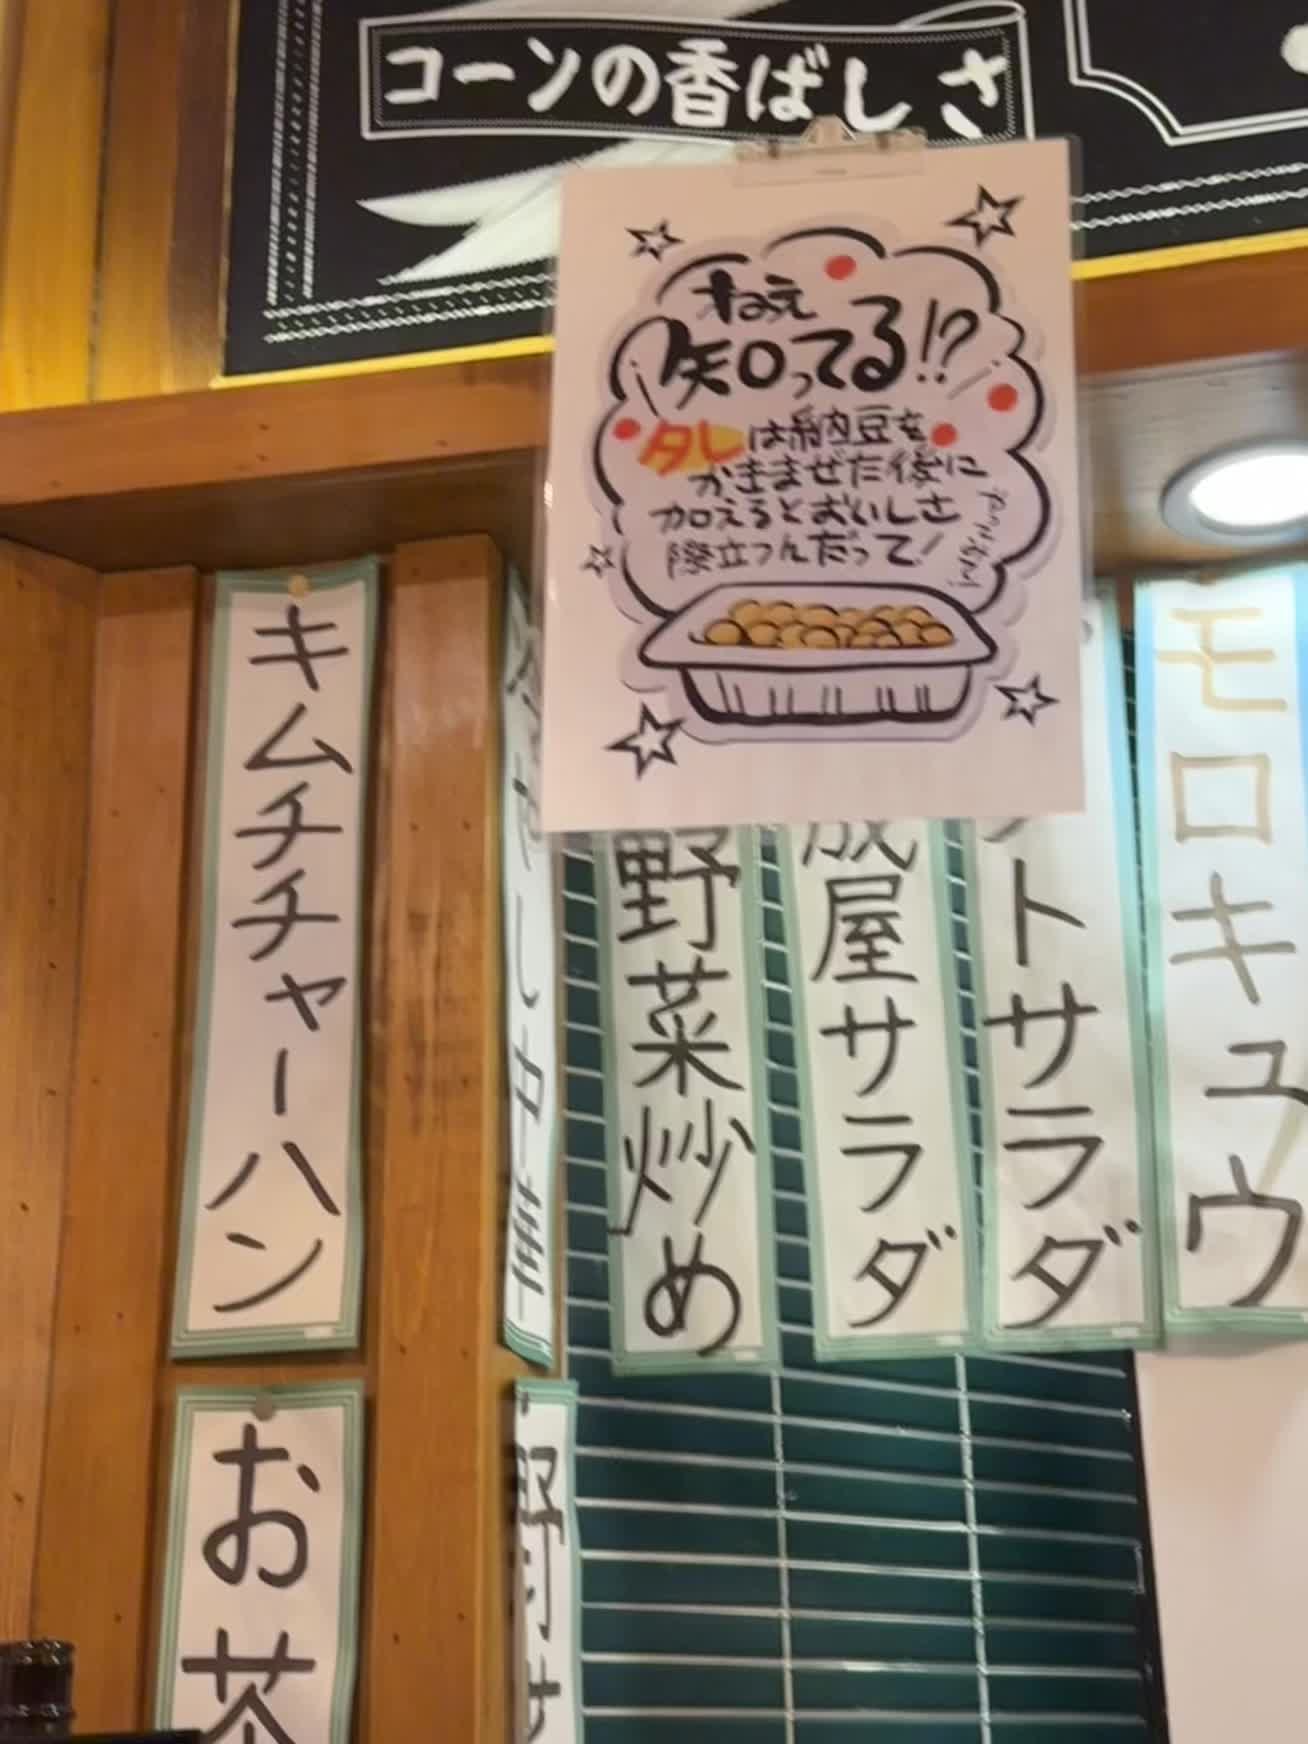 コーンの香ばしさ
ねぇ
知ってる!?
タレは納豆を
かきまぜた後に
加えるとおいしさ
際立つんだって!
キムチチャーハン
やし中華
野菜炒め
屋サラダ
トサラダ
モロキュウ
お茶
野